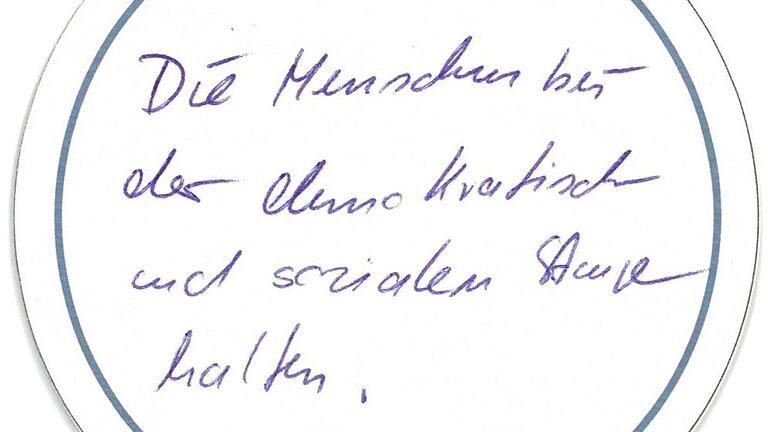 Die Menschen bei
der demokratisch
und sozialen Stange
halten.